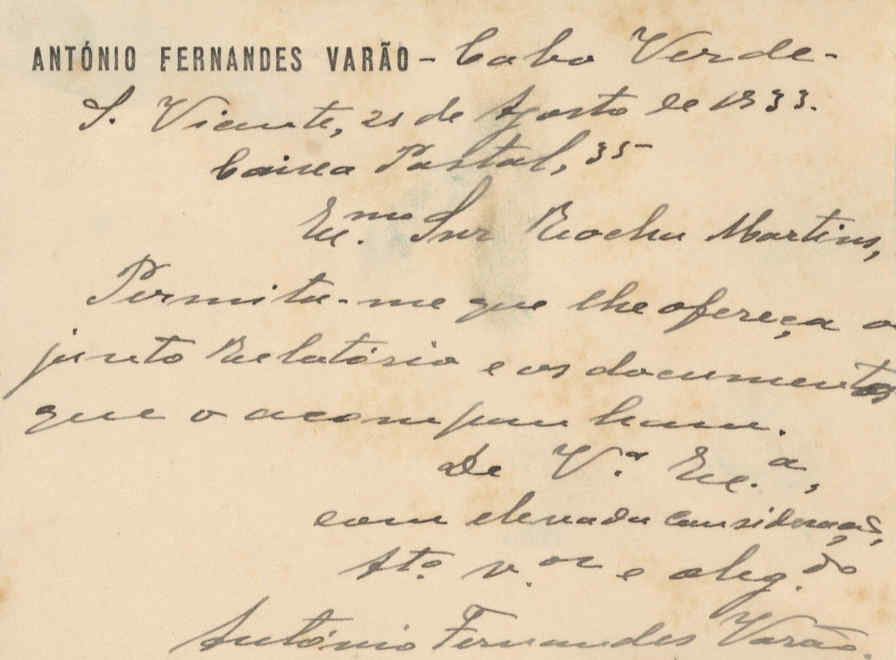 ANTÓNIO FERNANDES VARÃO - Cabo Verde -
S. Vicente, 21 de Agosto de 1933.
Caixa Postal, 35
Exmo. Snr Rocha Martins,
Permita-me que lhe ofereça o
junto Relatório e os documentos
que o acompanham.
De V.ª Ex.ª,
com elevada consideração,
Atº. v.or e obg.do
António Fernandes Varão.